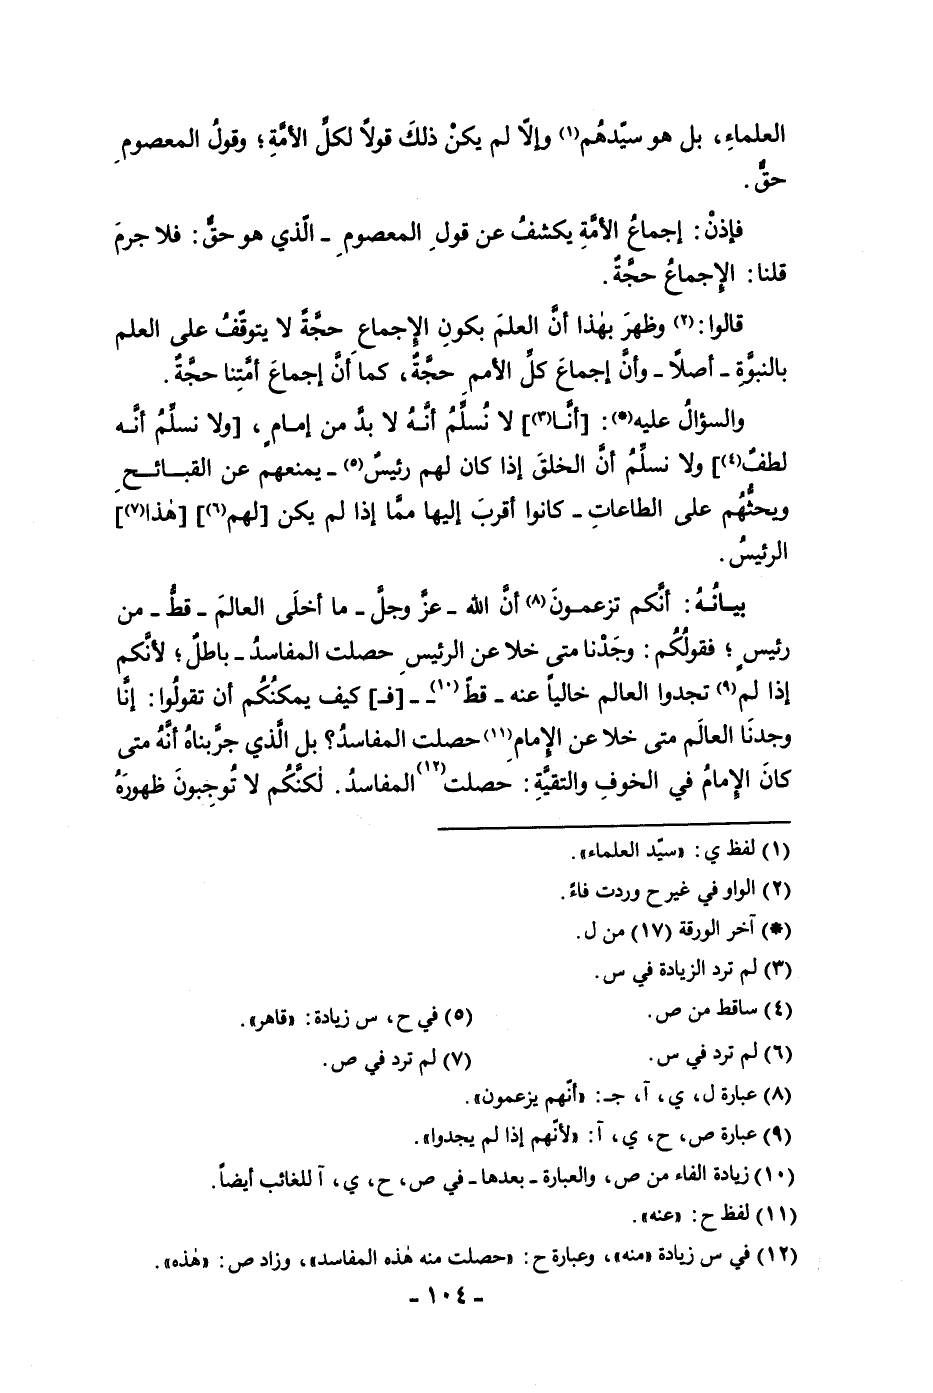 العلماءِ، بل هو سيّدهُم(١) وإلّا لم يكنْ ذلكَ قولاً لكلِّ الأمَّةِ؛ وقولُ المعصومِ
حقٌّ.
فإذنْ: إجماعُ الأمَّةِ يكشفُ عن قولِ المعصومِ ـ الّذي هو حقٌّ: فلا جرمَ
قلنا: الإِجماعُ حجَّةٌ.
قالوا:(٢) وظهرَ بهٰذا أنَّ العلمَ بكونِ الإِجماعِ حجَّةً لا يتوقَّفُ على العلم
بالنبوَّةِ ـ أصلاً ـ وأنَّ إجماعَ كلِّ الأممِ حجَّةٌ، كما أنَّ إجماعَ أمَّتِنا حجَّةٌ.
والسؤالُ عليه(*): [أنَّا(٣)] لا نُسلِّمُ أنَّهُ لا بدَّ من إمامٍ، [ولا نسلِّمُ أنَّه
لطفٌ(٤)] ولا نسلِّمُ أنَّ الخلقَ إذا كان لهم رئيسٌ(٥) ـ يمنعهم عن القبائحِ
ويحثُّهُم على الطاعاتِ ـ كانوا أقربَ إليها ممَّا إذا لم يكن [لهم(٦)] [هٰذا(٧)]
الرئيسُ.
بيانُهُ: أنَّكم تزعمونَ(٨) أنَّ الله ـ عزَّ وجلَّ ـ ما أخلَى العالمَ ـ قطُّ ـ من
رئيسٍ؛ فقولُكُم: وجَدْنا متى خلا عن الرئيسِ حصلت المفاسدُ ـ باطلٌ؛ لأنَّكم
إذا لم(٩) تجدوا العالم خالياً عنه ـ قطّ(١٠) ـ [فـ] كيف يمكنُكُم أن تقولُوا: إنَّا
وجدنَا العالَم متى خلا عن الإِمامِ(١١) حصلت المفاسدُ؟ بل الَّذي جرَّبناهُ أنَّهُ متى
كانَ الإِمامُ في الخوفِ والتقيَّةِ: حصلت(١٢) المفاسدُ. لٰكنَّكُم لا تُوجِبونَ ظهورَهُ
(١) لفظ ي: «سيّد العلماء».
(٢) الواو في غير ح وردت فاءً.
(*) آخر الورقة (١٧) من ل.
(٣) لم ترد الزيادة في س.
(٤) ساقط من ص. (٥) في ح، س زيادة: «قاهر».
(٦) لم ترد في س. (٧) لم ترد في ص.
(٨) عبارة ل، ي، آ، جـ: «أنّهم يزعمون».
(٩) عبارة ص، ح، ي، آ: «لأنّهم إذا لم يجدوا».
(١٠) زيادة الفاء من ص، والعبارة ـ بعدها ـ في ص، ح، ي، آ للغائب أيضاً.
(١١) لفظ ح: «عنه».
(١٢) في س زيادة «منه»، وعبارة ح: «حصلت منه هٰذه المفاسد»، وزاد ص: «هٰذه».
ـ ١٠٤ ـ